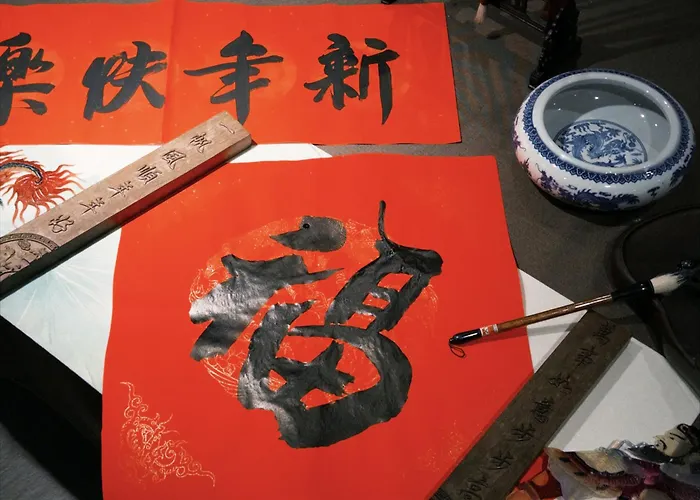 新年快樂
一帆風順年年好
福